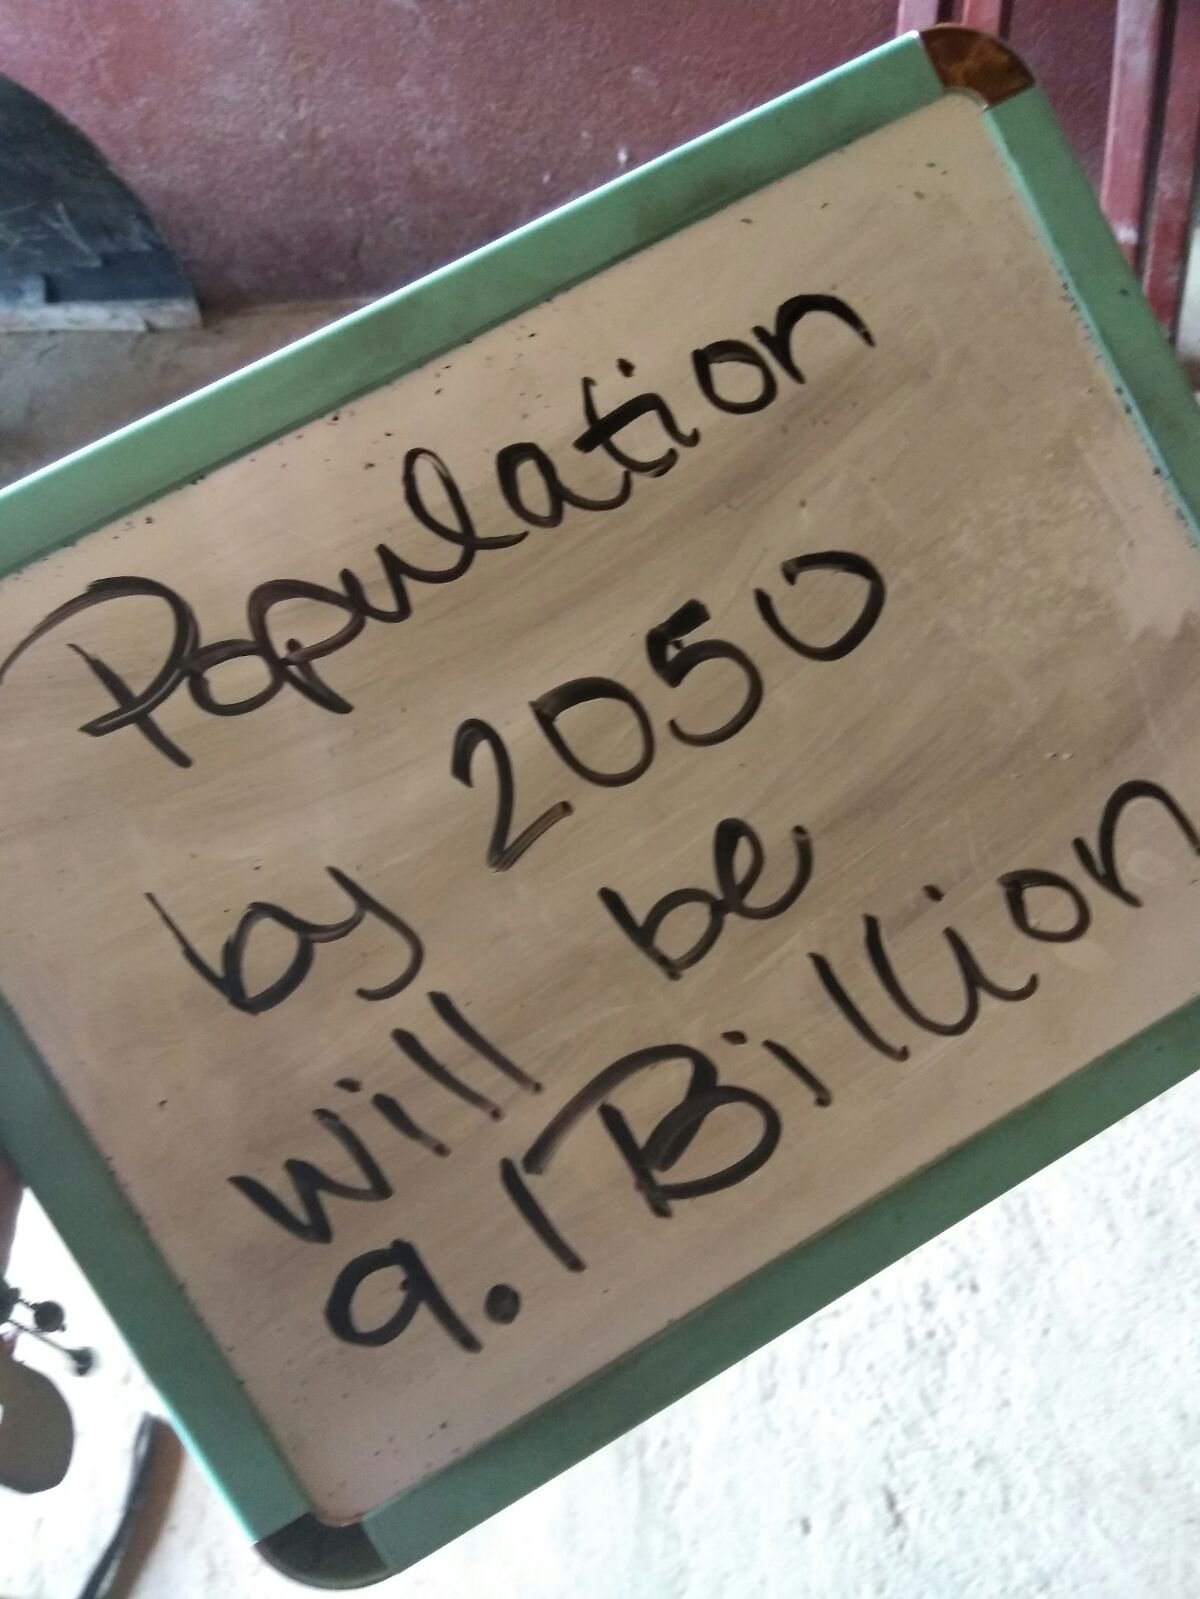 Population
by 2050
will be
9.1 Billion